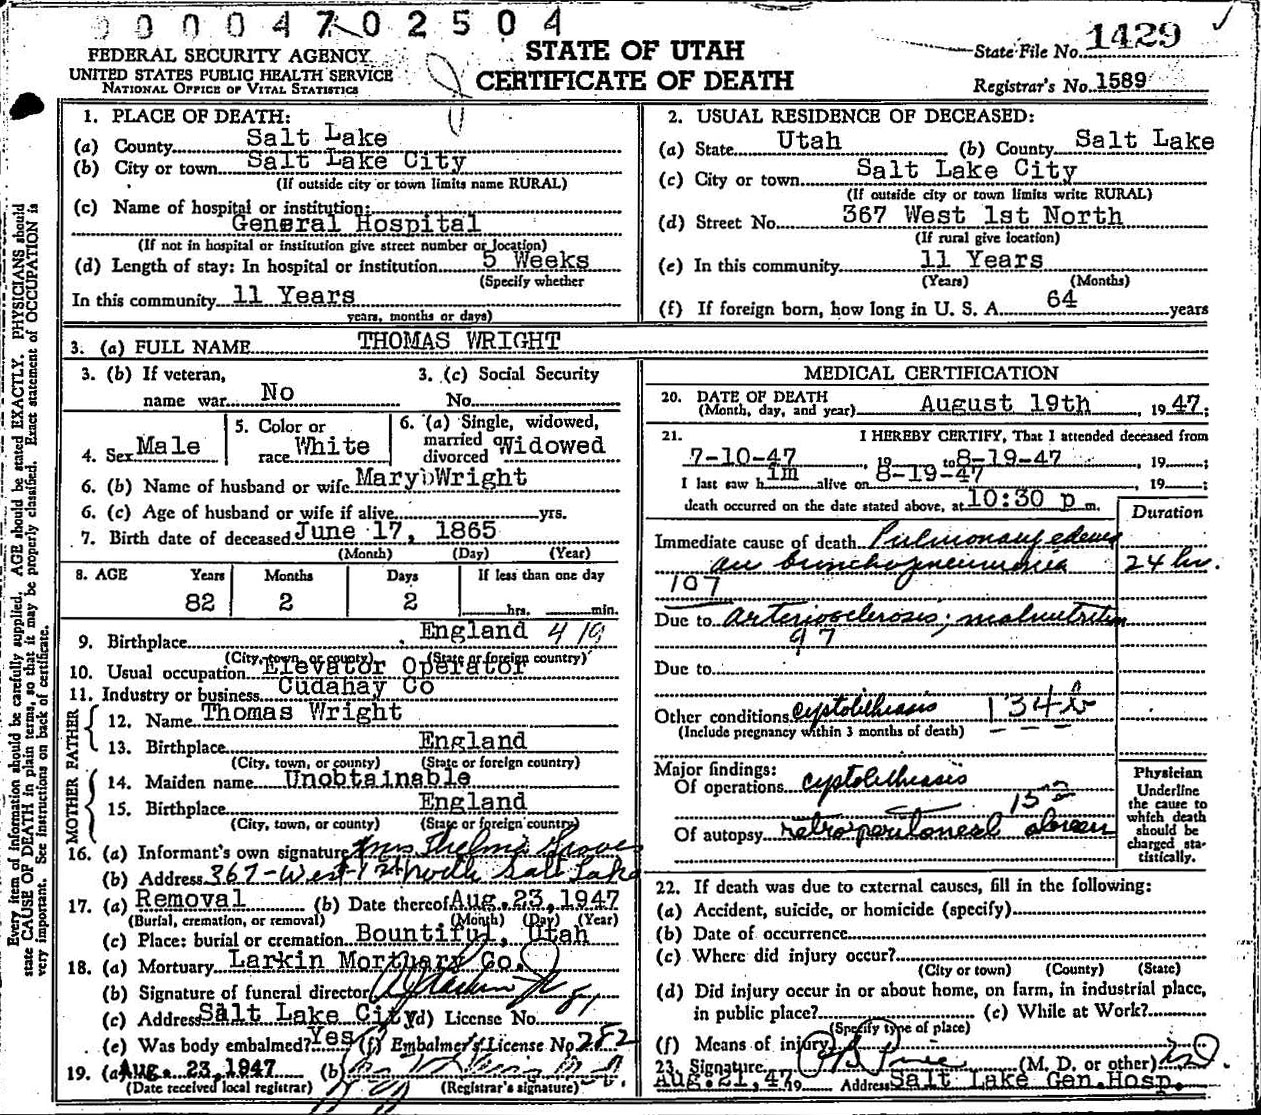 00004702504
FEDERAL SECURITY AGENCY
UNITED STATES PUBLIC HEALTH SERVICE
NATIONAL OFFICE OF VITAL STATISTICS
STATE OF UTAH
CERTIFICATE OF DEATH
State File No. 1429
Registrar's No. 1589
Every item of information should be carefully supplied. AGE should be stated EXACTLY. PHYSICIANS should
state CAUSE OF DEATH in plain terms, so that it may be properly classified. Exact statement of OCCUPATION is
very important. See instructions on back of certificate.
1. PLACE OF DEATH:
(a) County Salt Lake
(b) City or town Salt Lake City
(If outside city or town limits name RURAL)
(c) Name of hospital or institution:
General Hospital
(If not in hospital or institution give street number or location)
(d) Length of stay: In hospital or institution 5 Weeks
(Specify whether
In this community 11 Years
years, months or days)
2. USUAL RESIDENCE OF DECEASED:
(a) State Utah (b) County Salt Lake
(c) City or town Salt Lake City
(If outside city or town limits write RURAL)
(d) Street No. 367 West 1st North
(If rural give location)
(e) In this community 11 Years
(Years) (Months)
(f) If foreign born, how long in U. S. A. 64 years
3. (a) FULL NAME THOMAS WRIGHT
3. (b) If veteran,
name war No
3. (c) Social Security
No.
4. Sex Male
5. Color or
race White
6. (a) Single, widowed,
married or
divorced Widowed
6. (b) Name of husband or wife Mary Wright
6. (c) Age of husband or wife if alive yrs.
7. Birth date of deceased June 17, 1865
(Month) (Day) (Year)
8. AGE Years Months Days If less than one day
82 2 2 hrs. min.
9. Birthplace England 419
(City, town, or county) (State or foreign country)
10. Usual occupation Elevator Operator
11. Industry or business Cudahay Co
FATHER
12. Name Thomas Wright
13. Birthplace England
(City, town, or county) (State or foreign country)
MOTHER
14. Maiden name Unobtainable
15. Birthplace England
(City, town, or county) (State or foreign country)
16. (a) Informant's own signature Mrs Thelma Groves
(b) Address 367-West-1st North Salt Lake
17. (a) Removal (b) Date thereof Aug. 23, 1947
(Burial, cremation, or removal) (Month) (Day) (Year)
(c) Place: burial or cremation Bountiful, Utah
18. (a) Mortuary Larkin Mortuary Co.
(b) Signature of funeral director
(c) Address Salt Lake City (d) License No. 81
(e) Was body embalmed? Yes (f) Embalmer's License No 282
19. (a) Aug. 23, 1947 (b)
(Date received local registrar) (Registrar's signature)
MEDICAL CERTIFICATION
20. DATE OF DEATH
(Month, day, and year) August 19th, 1947;
21. I HEREBY CERTIFY, That I attended deceased from
7-10-47, 19 to 8-19-47, 19 ;
I last saw h im alive on 8-19-47, 19 ;
death occurred on the date stated above, at 10:30 p m.
Duration
Immediate cause of death Pulmonary edema
bronchopneumonia 24 hr.
107
Due to arteriosclerosis; malnutrition
97
Due to
Other conditions cystolithiasis 134b
(Include pregnancy within 3 months of death)
Major findings:
Of operations cystolithiasis
Of autopsy retroperitoneal
Physician
Underline
the cause to
which death
should be
charged sta-
tistically.
22. If death was due to external causes, fill in the following:
(a) Accident, suicide, or homicide (specify)
(b) Date of occurrence
(c) Where did injury occur?
(City or town) (County) (State)
(d) Did injury occur in or about home, on farm, in industrial place,
in public place? (e) While at Work?
(Specify type of place)
(f) Means of injury
23. Signature (M. D. or other) MD
Aug. 21, 47 19 Address Salt Lake Gen.Hosp.